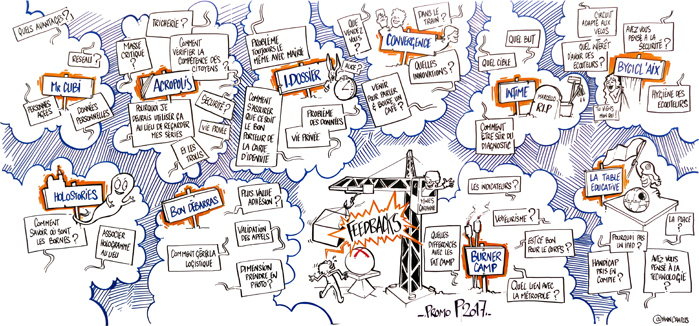 QUELS AVANTAGES ?
RESEAU ?
Mc CUBI
PERSONNES
AGÉES
DONNÉES
PERSONNELLES
TRICHERIE ?
MASSE
CRITIQUE ?
COMMENT
VÉRIFIER LA
COMPÉTENCE DES
CITOYENS ?
ACROPOLIS
POURQUOI JE
DEVRAIS UTILISER ÇA
AU LIEU DE REGARDER
MES SÉRIES
SÉCURITÉ ?
VIE PRIVÉE
ET LES
TROLLS
PROBLÈME
TOUJOURS LE
MÊME AVEC MAIRIE
I.DOSSIER
ALICE ?
COMMENT
S'ASSURER
QUE CE SOIT
LE BON
PORTEUR DE
LA CARTE
D'IDENTITÉ
PROBLÈME
DES DONNÉES
VIE PRIVÉE
QUE
VENDEZ
VOUS ?
DANS LE
TRAIN ?
CONVERGENCE
QUELLES
INNOVATIONS ?
VENIR
POUR PARLER
& BOIRE DU
CAFÉ ?
QUEL BUT
QUEL CIBLE
INTIME
MARCELLO
R.I.P
COMMENT
ÊTRE SÛR DU
DIAGNOSTIC
CIRCUIT
ADAPTÉ AUX
VÉLOS
QUEL INTÉRÊT
D'AVOIR DES
ÉCOUTEURS ?
AVEZ VOUS
PENSÉ À LA
SÉCURITÉ ?
BYCICL'AIX
HYGIÈNE DES
ÉCOUTEURS
HOLOSTORIES
COMMENT
SAVOIR OÙ SONT
LES BORNES ?
ASSOCIER
HOLOGRAMME
AU LIEU
BON DÉBARRAS
PLUS VALUE
ADHÉSION ?
VALIDATION
DES APPELS
COMMENT GÉRER LA
LOGISTIQUE
DIMENSION
PRENDRE EN
PHOTO ?
FEEDBACKS
..PROMO P2017..
LES INDICATEURS ?
VOYEURISME ?
QUELLES
DIFFÉRENCES
AVEC LES
FAT CAMP
BURNER
CAMP
EST CE BON
POUR LE CORPS ?
QUEL LIEN AVEC
LA MÉTROPOLE ?
LA TABLE
ÉDUCATIVE
LA PLACE
?
POURQUOI PAS
UN IPAD ?
HANDICAP
PRIS EN
COMPTE ?
AVEZ VOUS
PENSÉ À LA
TECHNOLOGIE
?